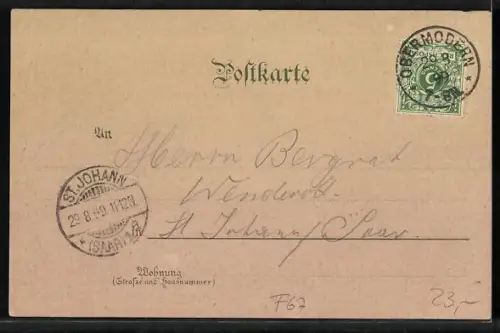 OBERMODERN
Postkarte
An
Herrn Bergrat
ST. JOHANN
29.8.99. 11-12N.
* (SAAR)
St Johann / Saar.
Wohnung
(Straße und Hausnummer)
F67
23,-